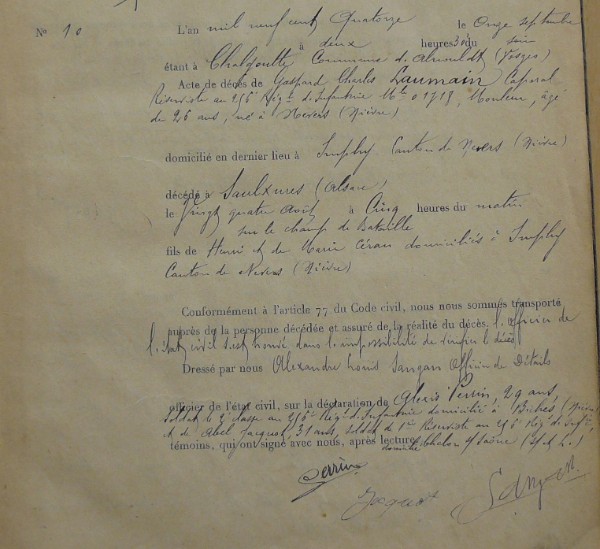 N° 10
L'an mil neuf cent Quatorze le Onze septembre
à deux heures 30 du soir
étant à Commune d (Vosges)
Acte de décès de Gaspard Charles Laumain Caporal
Réserviste au 256e Régt d'Infanterie Mle 01718, Mouleur, âgé
de 26 ans, né à Nevers (Nièvre)
domicilié en dernier lieu à Imphy Canton de Nevers (Nièvre)
décédé à Saulxures (Alsace)
le Vingt quatre Août à Cinq heures du matin
sur le champ de Bataille
fils de Henri et de Marie domiciliés à Imphy
Canton de Nevers (Nièvre)
Conformément à l'article 77 du Code civil, nous nous sommes transporté
auprès de la personne décédée et assuré de la réalité du décès. l'Officier de
l'état civil s'est trouvé dans l'impossibilité de le décès
Dressé par nous Alexandre Louis Officier de Détails
officier de l'état civil, sur la déclaration de Alexis Perrin, 29 ans,
Soldat de 2e classe au 256e Régt d'Infanterie domicilié à
et de Abel Jacquot, 31 ans, soldat de 1re Réserviste au 256 Régt d'Infie
témoins, qui ont signé avec nous, après lecture. domicilié Chalon s/ Saône (S. et L.)
Perrin
Jacquot